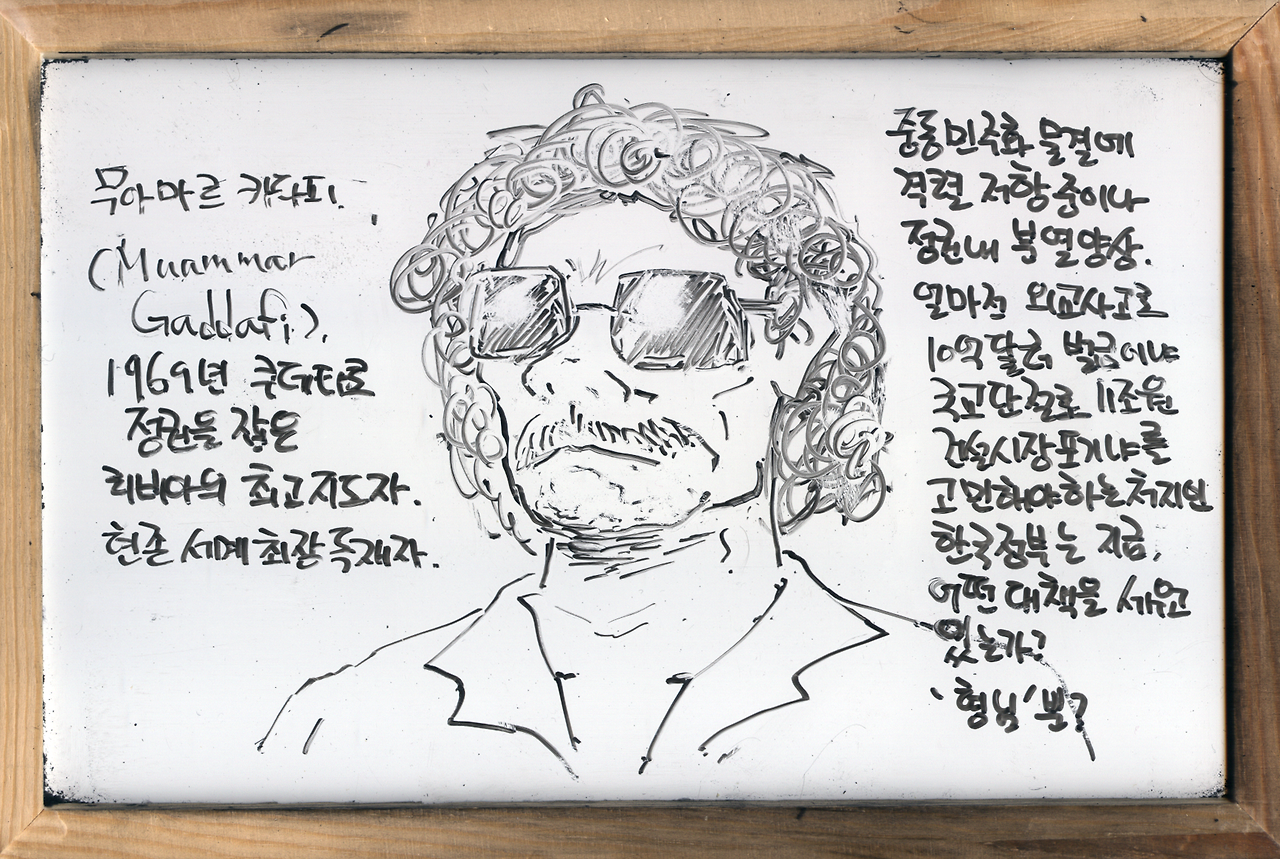 무아마르 카다피.
(Muammar
Gaddafi).
1969년 쿠데타로
정권을 잡은
리비아의 최고지도자.
현존 세계 최장 독재자.
중동 민주화 물결에
격렬 저항중이나
정권내 분열양상.
얼마전 외교사고로
10억달러 벌금이냐
국교단절로 11조원
건설시장포기냐를
고민해야하는처지인
한국정부는 지금,
어떤 대책을 세우고
있는가?
'형님'뿐?